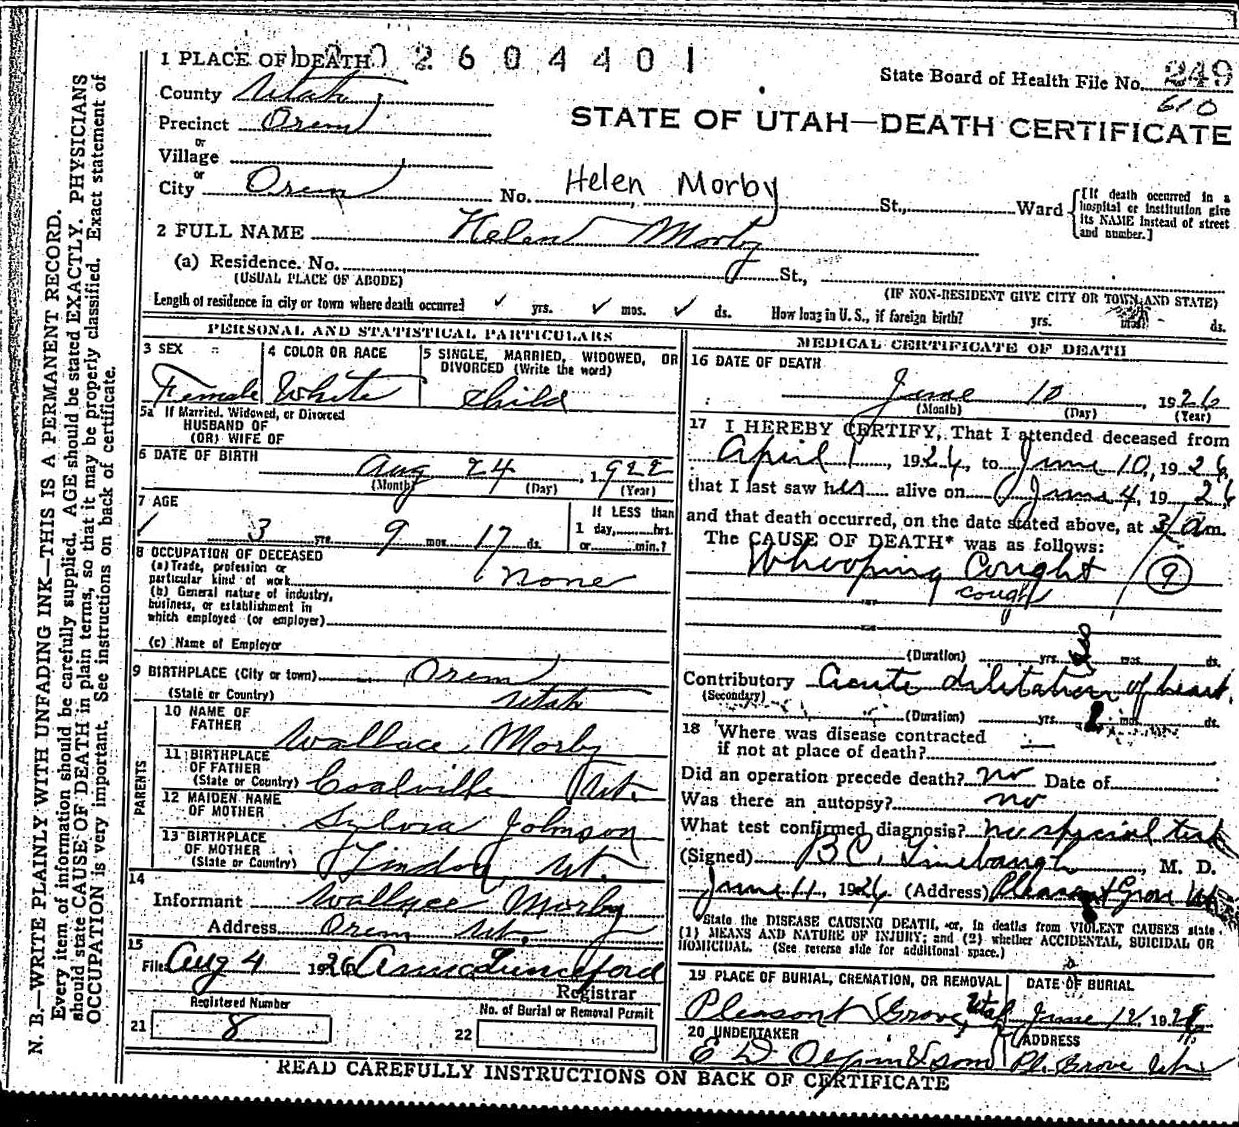 1 PLACE OF DEATH
2 6 0 4 4 0 1
State Board of Health File No. 249
610
County Utah
Precinct Orem
STATE OF UTAH—DEATH CERTIFICATE
or
Village
or
City Orem No. Helen Morby St., Ward
[If death occurred in a hospital or institution give its NAME instead of street and number.]
2 FULL NAME Helen Morby
(a) Residence. No. St.,
(USUAL PLACE OF ABODE) (IF NON-RESIDENT GIVE CITY OR TOWN AND STATE)
Length of residence in city or town where death occurred ✓ yrs. ✓ mos. ✓ ds. How long in U. S., if foreign birth? yrs. mos. ds.
PERSONAL AND STATISTICAL PARTICULARS
3 SEX
Female
4 COLOR OR RACE
White
5 SINGLE, MARRIED, WIDOWED, OR DIVORCED (Write the word)
child
5a If Married, Widowed, or Divorced
HUSBAND OF
(OR) WIFE OF
6 DATE OF BIRTH
Aug 24, 1922
(Month) (Day) (Year)
7 AGE
3 yrs. 9 mos. 17 ds.
If LESS than
1 day, hrs.
or min.?
8 OCCUPATION OF DECEASED
(a) Trade, profession or
particular kind of work none
(b) General nature of industry,
business, or establishment in
which employed (or employer)
(c) Name of Employer
9 BIRTHPLACE (City or town) Orem
(State or Country) Utah
PARENTS
10 NAME OF FATHER Wallace Morby
11 BIRTHPLACE OF FATHER
(State or Country) Coalville Ut.
12 MAIDEN NAME OF MOTHER Sylvia Johnson
13 BIRTHPLACE OF MOTHER
(State or Country) Lindon, Ut.
14
Informant Wallace Morby
Address Orem Ut.
15
Filed Aug 4 1926
Registrar
Registered Number
21 8
No. of Burial or Removal Permit
22
MEDICAL CERTIFICATE OF DEATH
16 DATE OF DEATH
June 10, 1926
(Month) (Day) (Year)
17 I HEREBY CERTIFY, That I attended deceased from
April 1, 1926, to June 10, 1926,
that I last saw her alive on June 4, 1926
and that death occurred, on the date stated above, at 3 a m.
The CAUSE OF DEATH* was as follows:
Whooping Cought 9
cough
(Duration) yrs. mos. ds.
Contributory Acute dilitation of heart
(Secondary)
(Duration) yrs. mos. ds.
18 Where was disease contracted
if not at place of death?
Did an operation precede death? no Date of
Was there an autopsy? no
What test confirmed diagnosis? no special test
(Signed) B C Linebaugh, M. D.
June 11, 1926 (Address) Pleasant Grove Ut
*State the DISEASE CAUSING DEATH, or, in deaths from VIOLENT CAUSES state
(1) MEANS AND NATURE OF INJURY; and (2) whether ACCIDENTAL, SUICIDAL OR
HOMICIDAL. (See reverse side for additional space.)
19 PLACE OF BURIAL, CREMATION, OR REMOVAL
Pleasant Grove, Utah
DATE OF BURIAL
June 12, 192
20 UNDERTAKER
E D Olpin & son
ADDRESS
Pl. Grove Utah
READ CAREFULLY INSTRUCTIONS ON BACK OF CERTIFICATE
N. B.—WRITE PLAINLY WITH UNFADING INK—THIS IS A PERMANENT RECORD.
Every item of information should be carefully supplied. AGE should be stated EXACTLY. PHYSICIANS
should state CAUSE OF DEATH in plain terms, so that it may be properly classified. Exact statement of
OCCUPATION is very important. See instructions on back of certificate.